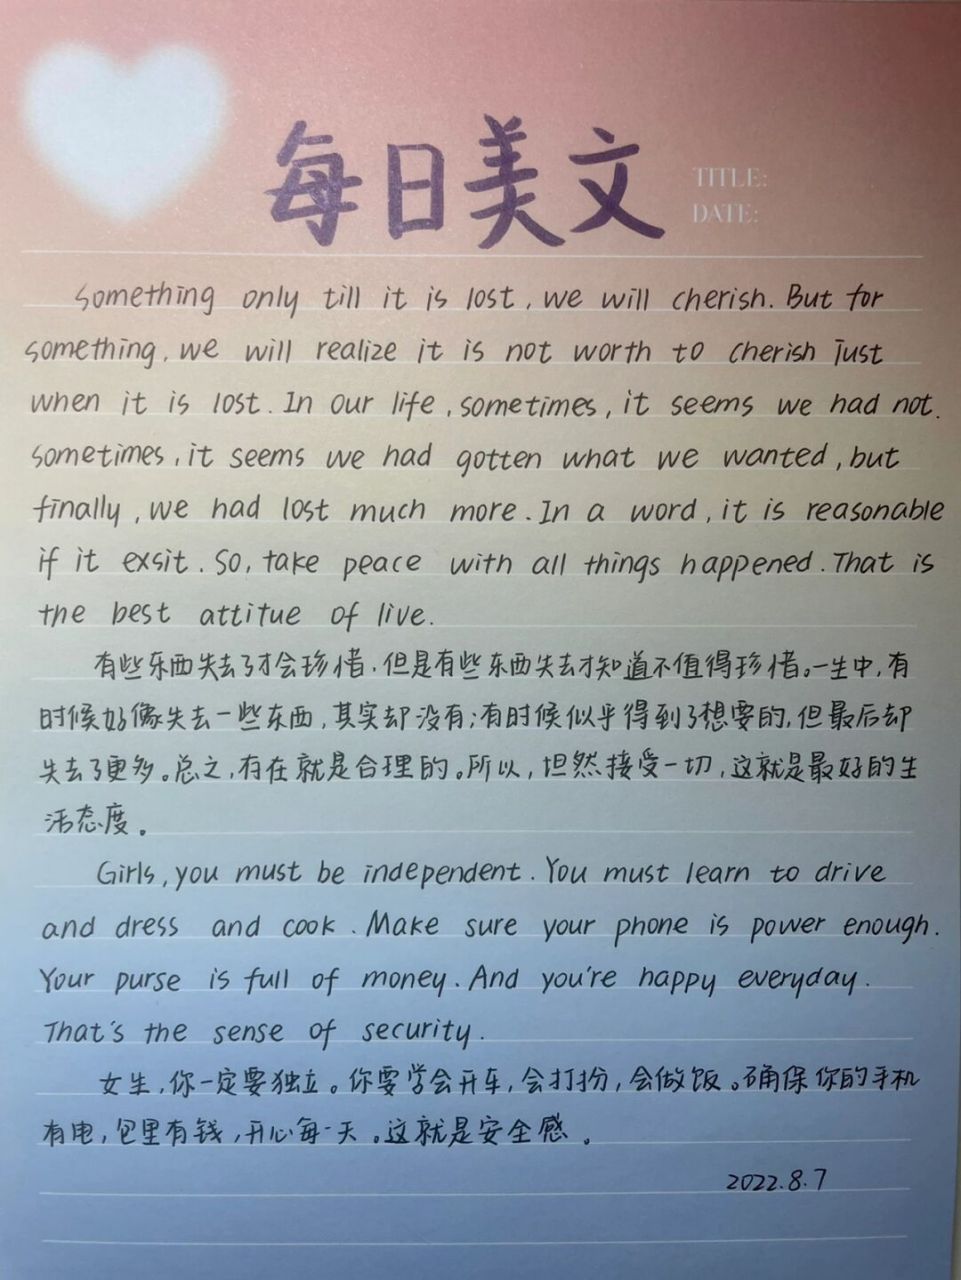 每日美文
TITLE:
DATE:
Something only till it is lost, we will cherish. But for
something, we will realize it is not worth to cherish just
when it is lost. In our life, sometimes, it seems we had not.
Sometimes, it seems we had gotten what we wanted, but
finally, we had lost much more. In a word, it is reasonable
if it exsit. So, take peace with all things happened. That is
the best attitue of live.
有些东西失去了才会珍惜.但是有些东西失去才知道不值得珍惜。一生中,有
时候好像失去一些东西,其实却没有;有时候似乎得到了想要的,但最后却
失去了更多。总之,存在就是合理的。所以,坦然接受一切,这就是最好的生
活态度。
Girls, you must be independent. You must learn to drive
and dress and cook. Make sure your phone is power enough.
Your purse is full of money. And you're happy everyday.
That's the sense of security.
女生,你一定要独立。你要学会开车,会打扮,会做饭。确保你的手机
有电,包里有钱,开心每一天。这就是安全感。
2022.8.7